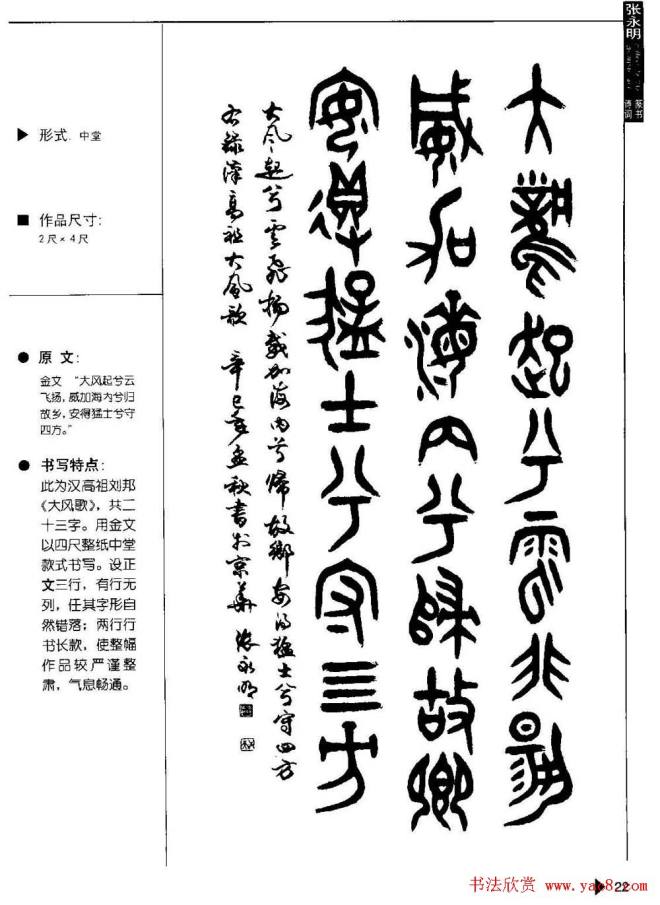 张永明
篆书
诗词
▶ 形式. 中堂
■ 作品尺寸:
2尺×4尺
● 原 文:
金文 “大风起兮云
飞扬,威加海内兮归
故乡,安得猛士兮守
四方。”
● 书写特点:
此为汉高祖刘邦
《大风歌》,共二
十三字。用金文
以四尺整纸中堂
款式书写。设正
文三行,有行无
列,任其字形自
然错落;两行行
书长款,使整幅
作品较严谨整
肃,气息畅通。
大风起兮云飞扬
威加海内兮归故乡
安得猛士兮守四方
大风起兮雲飛揚威加海内兮歸故鄉安得猛士兮守四方
右錄漢高祖大風歌 辛巳年孟秋書於京華 張永明
书法欣赏 www.yac8.com
22